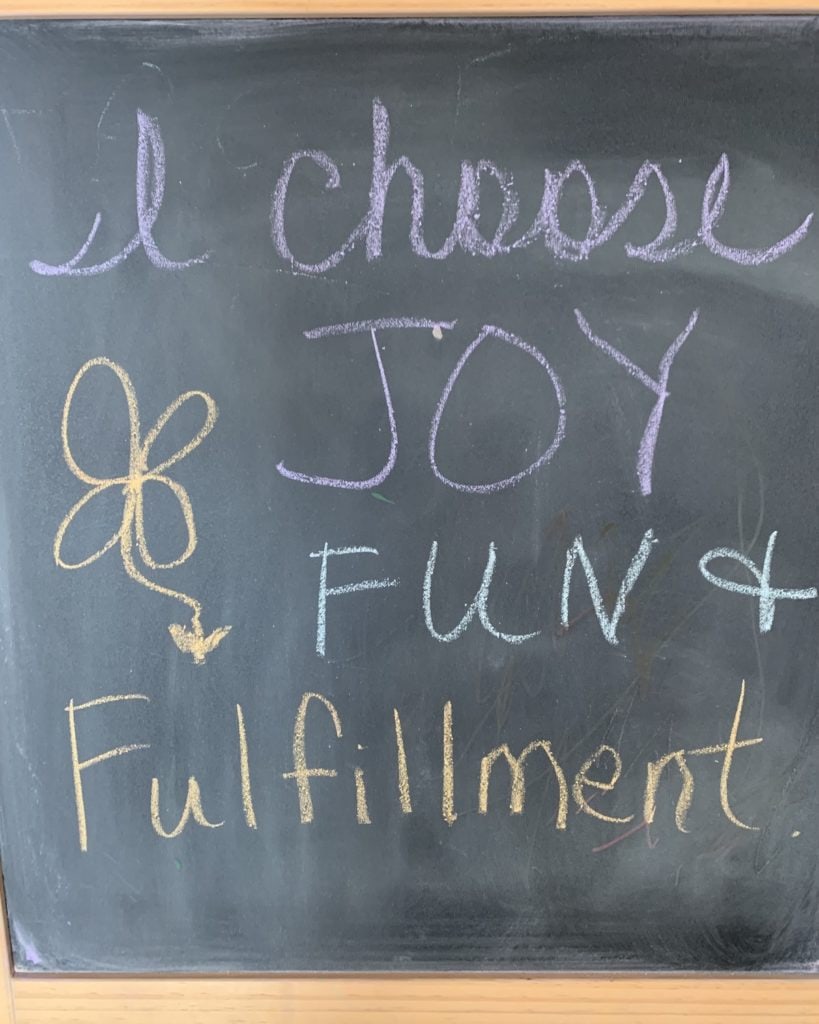 I choose
JOY
FUN &
Fulfillment.